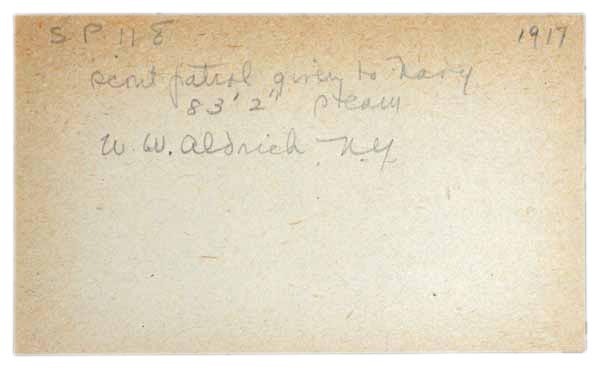 S P 118 1917
scout patrol given to Navy
83' 2" steam
W. W. Aldrich N.Y.